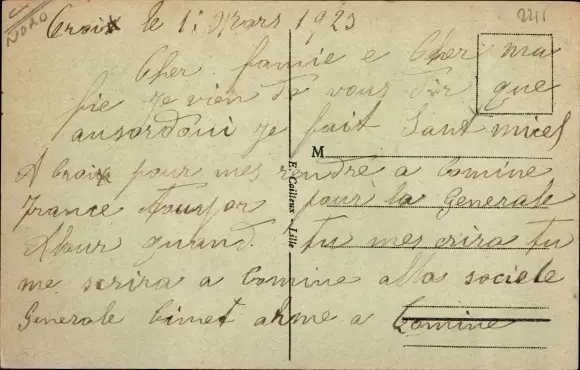 NORD
2211
Croix le 1: Mars 1923
Cher famie e Cher ma
fie je vien da vous dir que
ausordoui je fait
A Croix pour mes rendre a Comine
France Tousjor pour la Generale
Alour quand tu mes crira tu
me scrira a Comine alla societe
Generale a Comine
M
E. Cailteux - Lille